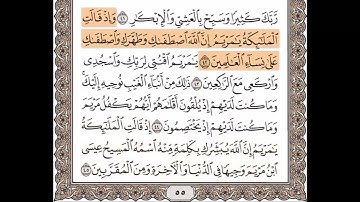 رَّبَّكَ كَثِيرًا وَسَبِّحْ بِٱلْعَشِيِّ وَٱلْإِبْكَٰرِ ٤١ وَإِذْ قَالَتِ
ٱلْمَلَٰٓئِكَةُ يَٰمَرْيَمُ إِنَّ ٱللَّهَ ٱصْطَفَىٰكِ وَطَهَّرَكِ وَٱصْطَفَىٰكِ
عَلَىٰ نِسَآءِ ٱلْعَٰلَمِينَ ٤٢ يَٰمَرْيَمُ ٱقْنُتِى لِرَبِّكِ وَٱسْجُدِى
وَٱرْكَعِى مَعَ ٱلرَّٰكِعِينَ ٤٣ ذَٰلِكَ مِنْ أَنۢبَآءِ ٱلْغَيْبِ نُوحِيهِ إِلَيْكَ
وَمَا كُنتَ لَدَيْهِمْ إِذْ يُلْقُونَ أَقْلَٰمَهُمْ أَيُّهُمْ يَكْفُلُ مَرْيَمَ
وَمَا كُنتَ لَدَيْهِمْ إِذْ يَخْتَصِمُونَ ٤٤ إِذْ قَالَتِ ٱلْمَلَٰٓئِكَةُ
يَٰمَرْيَمُ إِنَّ ٱللَّهَ يُبَشِّرُكِ بِكَلِمَةٍ مِّنْهُ ٱسْمُهُ ٱلْمَسِيحُ عِيسَى
ٱبْنُ مَرْيَمَ وَجِيهًا فِى ٱلدُّنْيَا وَٱلْءَاخِرَةِ وَمِنَ ٱلْمُقَرَّبِينَ ٤٥
٥٥